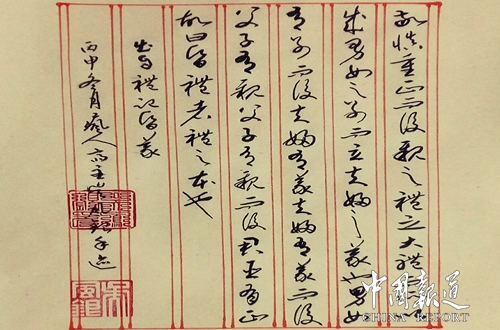 敬慎重正而後親之禮之大
成男女之別而立夫婦之義也男女
有別而後夫婦有義夫婦有義而後
父子有親父子有親而後君臣有正
故曰昏禮者禮之本也
出自禮記昏義
丙申冬月瘋人高玉手迹
中國報道
CHINA REPORT